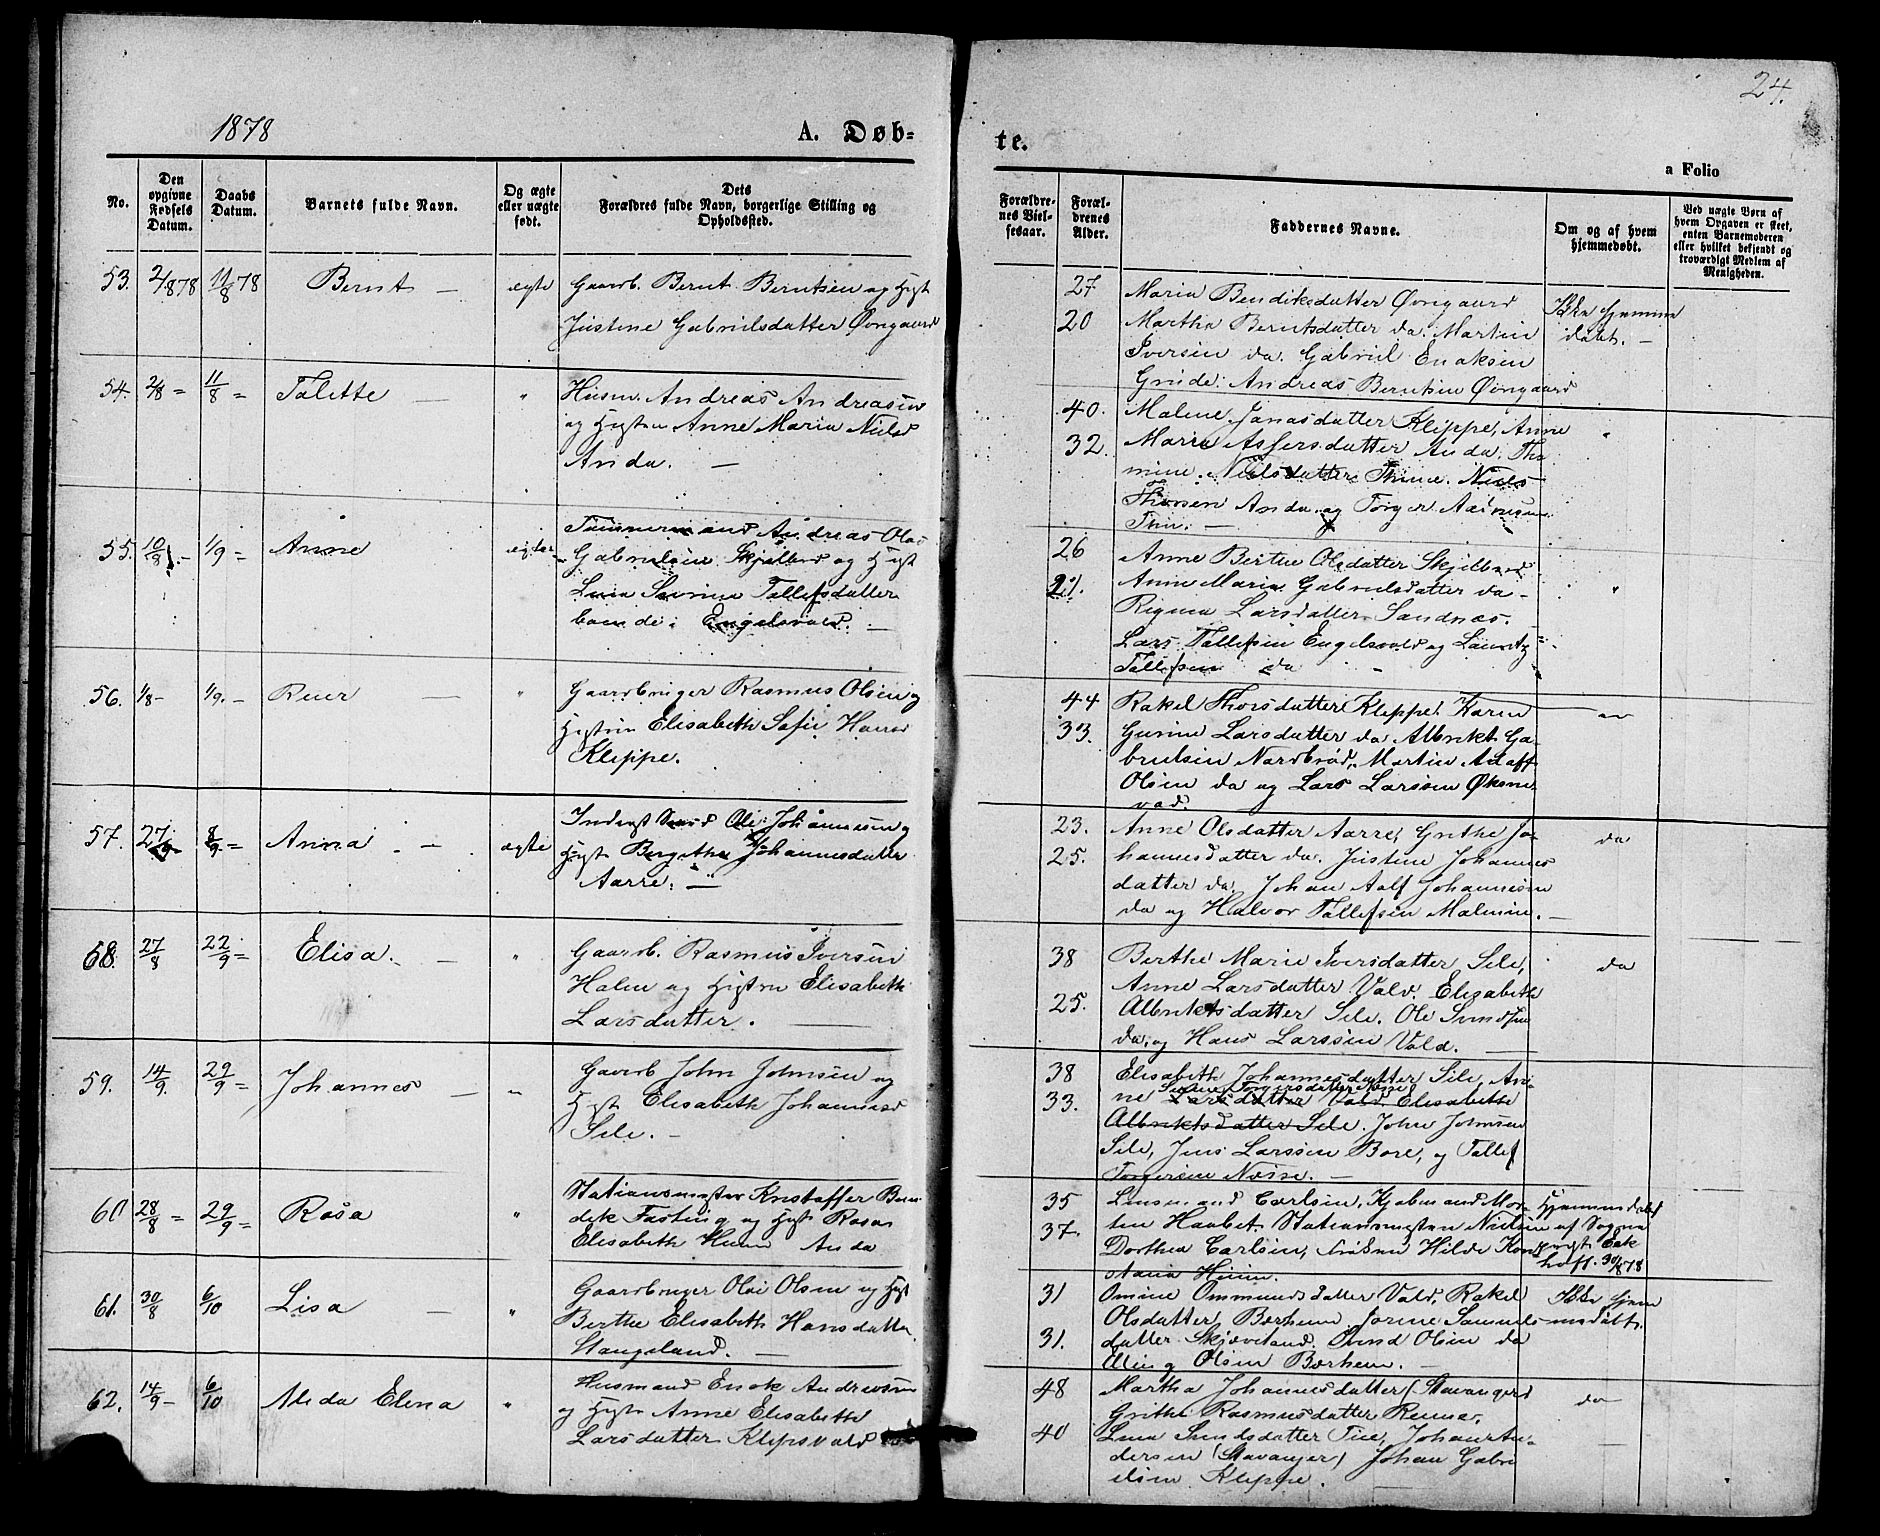 24.
1878
A. Døb-
te.
a Folio
No.
Den opgivne Fødsels Datum.
Daabs Datum.
Barnets fulde Navn.
Og ægte eller uægte født.
Dets Forældres fulde Navn, borgerlige Stilling og Opholdssted.
Forældrenes Vielsesaar.
Forældrenes Alder.
Faddernes Navne.
Om og af hvem hjemmedøbt.
Ved uægte Børn af hvem Opgaven er skeet, enten Barnemoderen eller hvilket bekjendt og troværdigt Medlem af Menigheden.
53. 2/8 78 11/8 78 Bernt — ægte Gaardb. Bernt Berntsen og Hgst
Justine Gabrielsdatter Øvregaard
27 Maria Bendiksdatter Øvregaard Ikke hjemme
20 Martha Berntsdatter da. Martin døbt. —
Iversen da. Gabriel Enoksen
Grude. Andreas Berntsen Øvregaard
54. 2/8 = 11/8 = Talette — " Husm. Andreas Andreasen
og Hgstru Anne Maria Nielsd
Anda. —
40. Malene Jonasdatter Kleppe, Anne "
32. Maria Asgersdatter Anda. Tho
mine Nielsdatter Thime. Niels
Thorsen Anda og Torger
Thim. —
55. 10/8 - 1/9 = Anne ægte Tømmermand Andreas Olai
Gabrielsen Skjelbred og Hgst
Lina Serina Tollefsdatter
boende i Engelsvold. —
26 Anne Birthe Olsdatter Skjelbred
21. Anne Maria Gabrielsdatter da - "
Regina Larsdatter Sandnes.
Lars Tollefsen Engelsvold og Lauritz
Tollefsen da -
56. 1/8 - 1/9. - Reier — " Gaardbruger Rasmus Olsen og
Hgstru Elisabeth Sofie Hansd
Kleppe.
44 Rakel Thorsdatter Kleppe. Karen
33. Gurine Larsdatter da Albrikt Ga-
brielsen Nordbrød, Martin Adolf
Olsen da og Lars Larssen Øksne
vad.
57. 27/9 8/9 = Anna - — ægte Inderst Ole Johannesen og
Hgst Bergithe Johannesdatter
Aarre. —
23. Anne Olsdatter Aarre, Grithe Jo- da
25. hannesdatter da. Justine Johannes
datter da. Johan Adolf Johannesen
da og Halvor Tollefsen Malmin. —
58. 27/8 22/9 = Elisa. — " Gaardb. Rasmus Iversen
Halen og Hgstru Elisabeth
Larsdatter. —
38 Berthe Marie Iversdatter Sele, da
Anne Larsdatter Vold. Elisabeth
25. Albriktsdatter Sele. Ole Svendsen
da. og Hans Larssen Vold. —
59. 14/9 29/9 = Johannes — " Gaardb John Johnsen og
Hgst Elisabeth Johannesd
Sele. —
38 Elisabeth Johannesdatter Sele, An-
Torgersdatter
33. ne Larsdatter Vold. Elisabeth
Albriktsdatter Sele. John Johnsen
Sele, Jens Larssen Bore, og Tollef
Torgersen Næsse. —
60 28/8 = 29/9 = Rosa " Stationsmester Kristoffer Ben-
dik Fasting og Hgst Rosa
Elisabeth Anda
35 Lensmand Carlsen, Kjøbmand Mor- Hjemmedøbt
37. ten Haabet. Stationsmester Nielsen af Sogne
Dorthea Carlsen, Frøken Hilde Kon præst Eck
stania hoff. 30/8 78
61. 30/8 6/10 Lisa — " Gaardbruger Olai Olsen og Hgst
Berthe Elisabeth Hansdatter
Stangeland. —
31 Omine Ommundsdatter Vold, Rakel Ikke hjem
Olsdatter Børheim Jorine Samuels- medøbt.
31. datter Skjæveland Ovind Olsen da
Elling Olsen Børheim. —
62. 14/9 - 6/10 Alida Elena " Husmand Enok Andreassen
og Hgst Anne Elisabeth
Larsdatter Klepsvold
48 Martha Johannesdatter (Stavanger) da
Grithe Rasmusdatter Reime.
40 Lina Svendsdatter Tue, Johan An- —
dersen (Stavanger) Johan Gabri
elsen Kleppe.